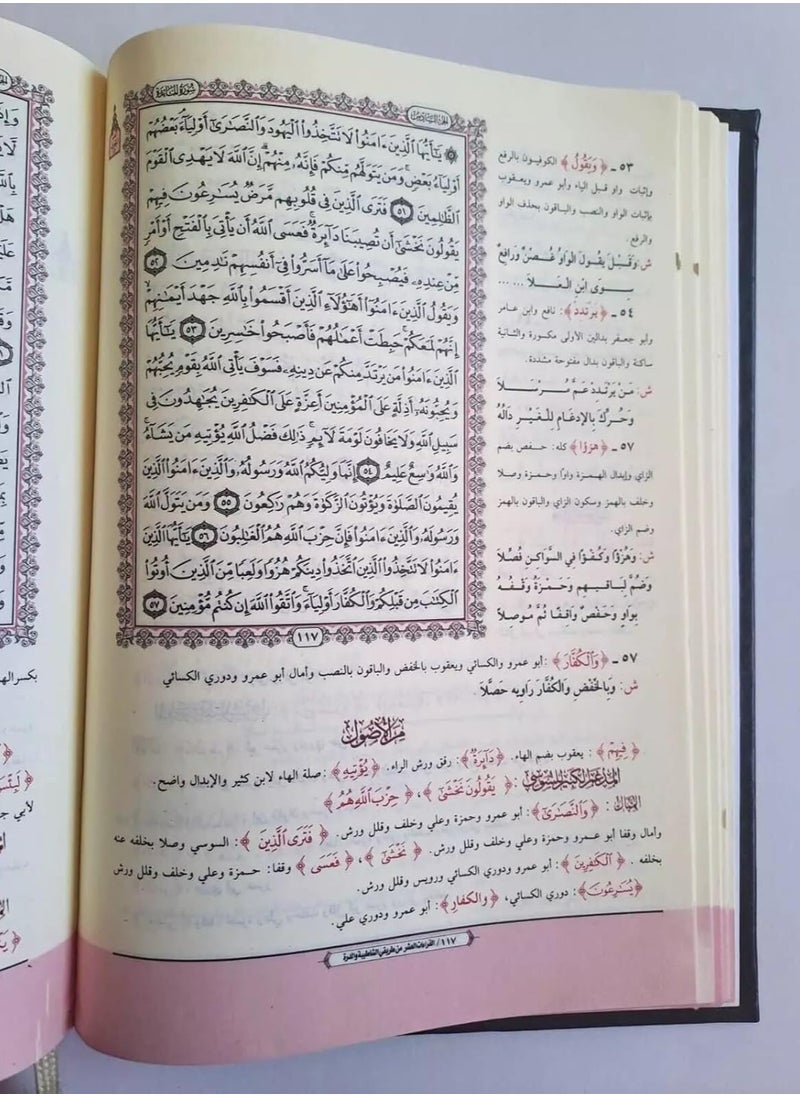 سورة المائدة
الجزء السادس
۞ يَٰٓأَيُّهَا ٱلَّذِينَ ءَامَنُوا۟ لَا تَتَّخِذُوا۟ ٱلْيَهُودَ وَٱلنَّصَٰرَىٰٓ أَوْلِيَآءَ بَعْضُهُمْ
أَوْلِيَآءُ بَعْضٍ وَمَن يَتَوَلَّهُم مِّنكُمْ فَإِنَّهُۥ مِنْهُمْ إِنَّ ٱللَّهَ لَا يَهْدِى ٱلْقَوْمَ
ٱلظَّٰلِمِينَ ٥١ فَتَرَى ٱلَّذِينَ فِى قُلُوبِهِم مَّرَضٌ يُسَٰرِعُونَ فِيهِمْ
يَقُولُونَ نَخْشَىٰٓ أَن تُصِيبَنَا دَآئِرَةٌ فَعَسَى ٱللَّهُ أَن يَأْتِىَ بِٱلْفَتْحِ أَوْ أَمْرٍ
مِّنْ عِندِهِۦ فَيُصْبِحُوا۟ عَلَىٰ مَآ أَسَرُّوا۟ فِىٓ أَنفُسِهِمْ نَٰدِمِينَ ٥٢
وَيَقُولُ ٱلَّذِينَ ءَامَنُوٓا۟ أَهَٰٓؤُلَآءِ ٱلَّذِينَ أَقْسَمُوا۟ بِٱللَّهِ جَهْدَ أَيْمَٰنِهِمْ
إِنَّهُمْ لَمَعَكُمْ حَبِطَتْ أَعْمَٰلُهُمْ فَأَصْبَحُوا۟ خَٰسِرِينَ ٥٣ يَٰٓأَيُّهَا
ٱلَّذِينَ ءَامَنُوا۟ مَن يَرْتَدَّ مِنكُمْ عَن دِينِهِۦ فَسَوْفَ يَأْتِى ٱللَّهُ بِقَوْمٍ يُحِبُّهُمْ
وَيُحِبُّونَهُۥٓ أَذِلَّةٍ عَلَى ٱلْمُؤْمِنِينَ أَعِزَّةٍ عَلَى ٱلْكَٰفِرِينَ يُجَٰهِدُونَ فِى
سَبِيلِ ٱللَّهِ وَلَا يَخَافُونَ لَوْمَةَ لَآئِمٍ ذَٰلِكَ فَضْلُ ٱللَّهِ يُؤْتِيهِ مَن يَشَآءُ
وَٱللَّهُ وَٰسِعٌ عَلِيمٌ ٥٤ إِنَّمَا وَلِيُّكُمُ ٱللَّهُ وَرَسُولُهُۥ وَٱلَّذِينَ ءَامَنُوا۟ ٱلَّذِينَ
يُقِيمُونَ ٱلصَّلَوٰةَ وَيُؤْتُونَ ٱلزَّكَوٰةَ وَهُمْ رَٰكِعُونَ ٥٥ وَمَن يَتَوَلَّ ٱللَّهَ
وَرَسُولَهُۥ وَٱلَّذِينَ ءَامَنُوا۟ فَإِنَّ حِزْبَ ٱللَّهِ هُمُ ٱلْغَٰلِبُونَ ٥٦ يَٰٓأَيُّهَا ٱلَّذِينَ
ءَامَنُوا۟ لَا تَتَّخِذُوا۟ ٱلَّذِينَ ٱتَّخَذُوا۟ دِينَكُمْ هُزُوًا وَلَعِبًا مِّنَ ٱلَّذِينَ أُوتُوا۟
ٱلْكِتَٰبَ مِن قَبْلِكُمْ وَٱلْكُفَّارَ أَوْلِيَآءَ وَٱتَّقُوا۟ ٱللَّهَ إِن كُنتُم مُّؤْمِنِينَ ٥٧
١١٧
٥٣ - ﴿وَيَقُولُ﴾ الكوفيون بالرفع
وإثبات واو قبل الياء وأبو عمرو ويعقوب
بإثبات الواو والنصب والباقون بحذف الواو
والرفع.
ش: وَقَبْلَ يَقُولُ الْوَاوُ غُصْنٌ وَرَافِعٌ
سِوَى ابْنِ الْعَلَا ... ...
٥٤ - ﴿يَرْتَدِدْ﴾: نافع وابن عامر
وأبو جعفر بدالين الأولى مكسورة والثانية
ساكنة والباقون بدال مفتوحة مشددة.
ش: مَنْ يَرْتَدِدْ عَمَّ مُرْسَلَا
وَحُرِّكَ بِالإِدْغَامِ لِلْغَيْرِ دَالُهُ
٥٧ - ﴿هُزُوًا﴾ كله: حفص بضم
الزاي وإبدال الهمزة واوًا وحمزة وصلا
وخلف بالهمز وسكون الزاي والباقون بالهمز
وضم الزاي.
ش: وَهُزْؤًا وَكُفْؤًا في السَّوَاكِنِ فُصِّلَا
وَضُمَّ لِبَاقِيهِم وَحَمْزَةُ وَقْفُهُ
بِوَاوٍ وَحَفْصٌ وَاقِفًا ثُمَّ مُوصِلَا
٥٧ - ﴿وَٱلْكُفَّارِ﴾: أبو عمرو والكسائي ويعقوب بالخفض والباقون بالنصب وأمال أبو عمرو ودوري الكسائي
ش: وَبِالخَفْضِ وَالْكُفَّارَ رَاوِيهِ حَصَّلَا.
من الأصول
﴿فِيهِمْ﴾: يعقوب بضم الهاء. ﴿دَآئِرَةٌ﴾: رقق ورش الراء. ﴿يُؤْتِيهِ﴾: صلة الهاء لابن كثير والإبدال واضح.
المدغم الكبير للسوسي: ﴿يَقُولُونَ نَخْشَىٰ﴾، ﴿حِزْبَ ٱللَّهِ هُمُ﴾
الممال: ﴿وَٱلنَّصَٰرَىٰ﴾: أبو عمرو وحمزة وعلي وخلف وقلل ورش. ﴿فَتَرَى ٱلَّذِينَ﴾: السوسي وصلا بخلفه عنه
وأمال وقفا أبو عمرو وحمزة وعلي وخلف وقلل ورش. ﴿نَخْشَىٰ﴾، ﴿فَعَسَى﴾ وقفا: حمزة وعلي وخلف وقلل ورش
بخلفه. ﴿ٱلْكَٰفِرِينَ﴾: أبو عمرو ودوري الكسائي ورويس وقلل ورش.
﴿يُسَٰرِعُونَ﴾: دوري الكسائي، ﴿والكفار﴾: أبو عمرو ودوري علي.
١١٧ / القراءات العشر من طريقي الشاطبية والدرة
بكسر الهـ